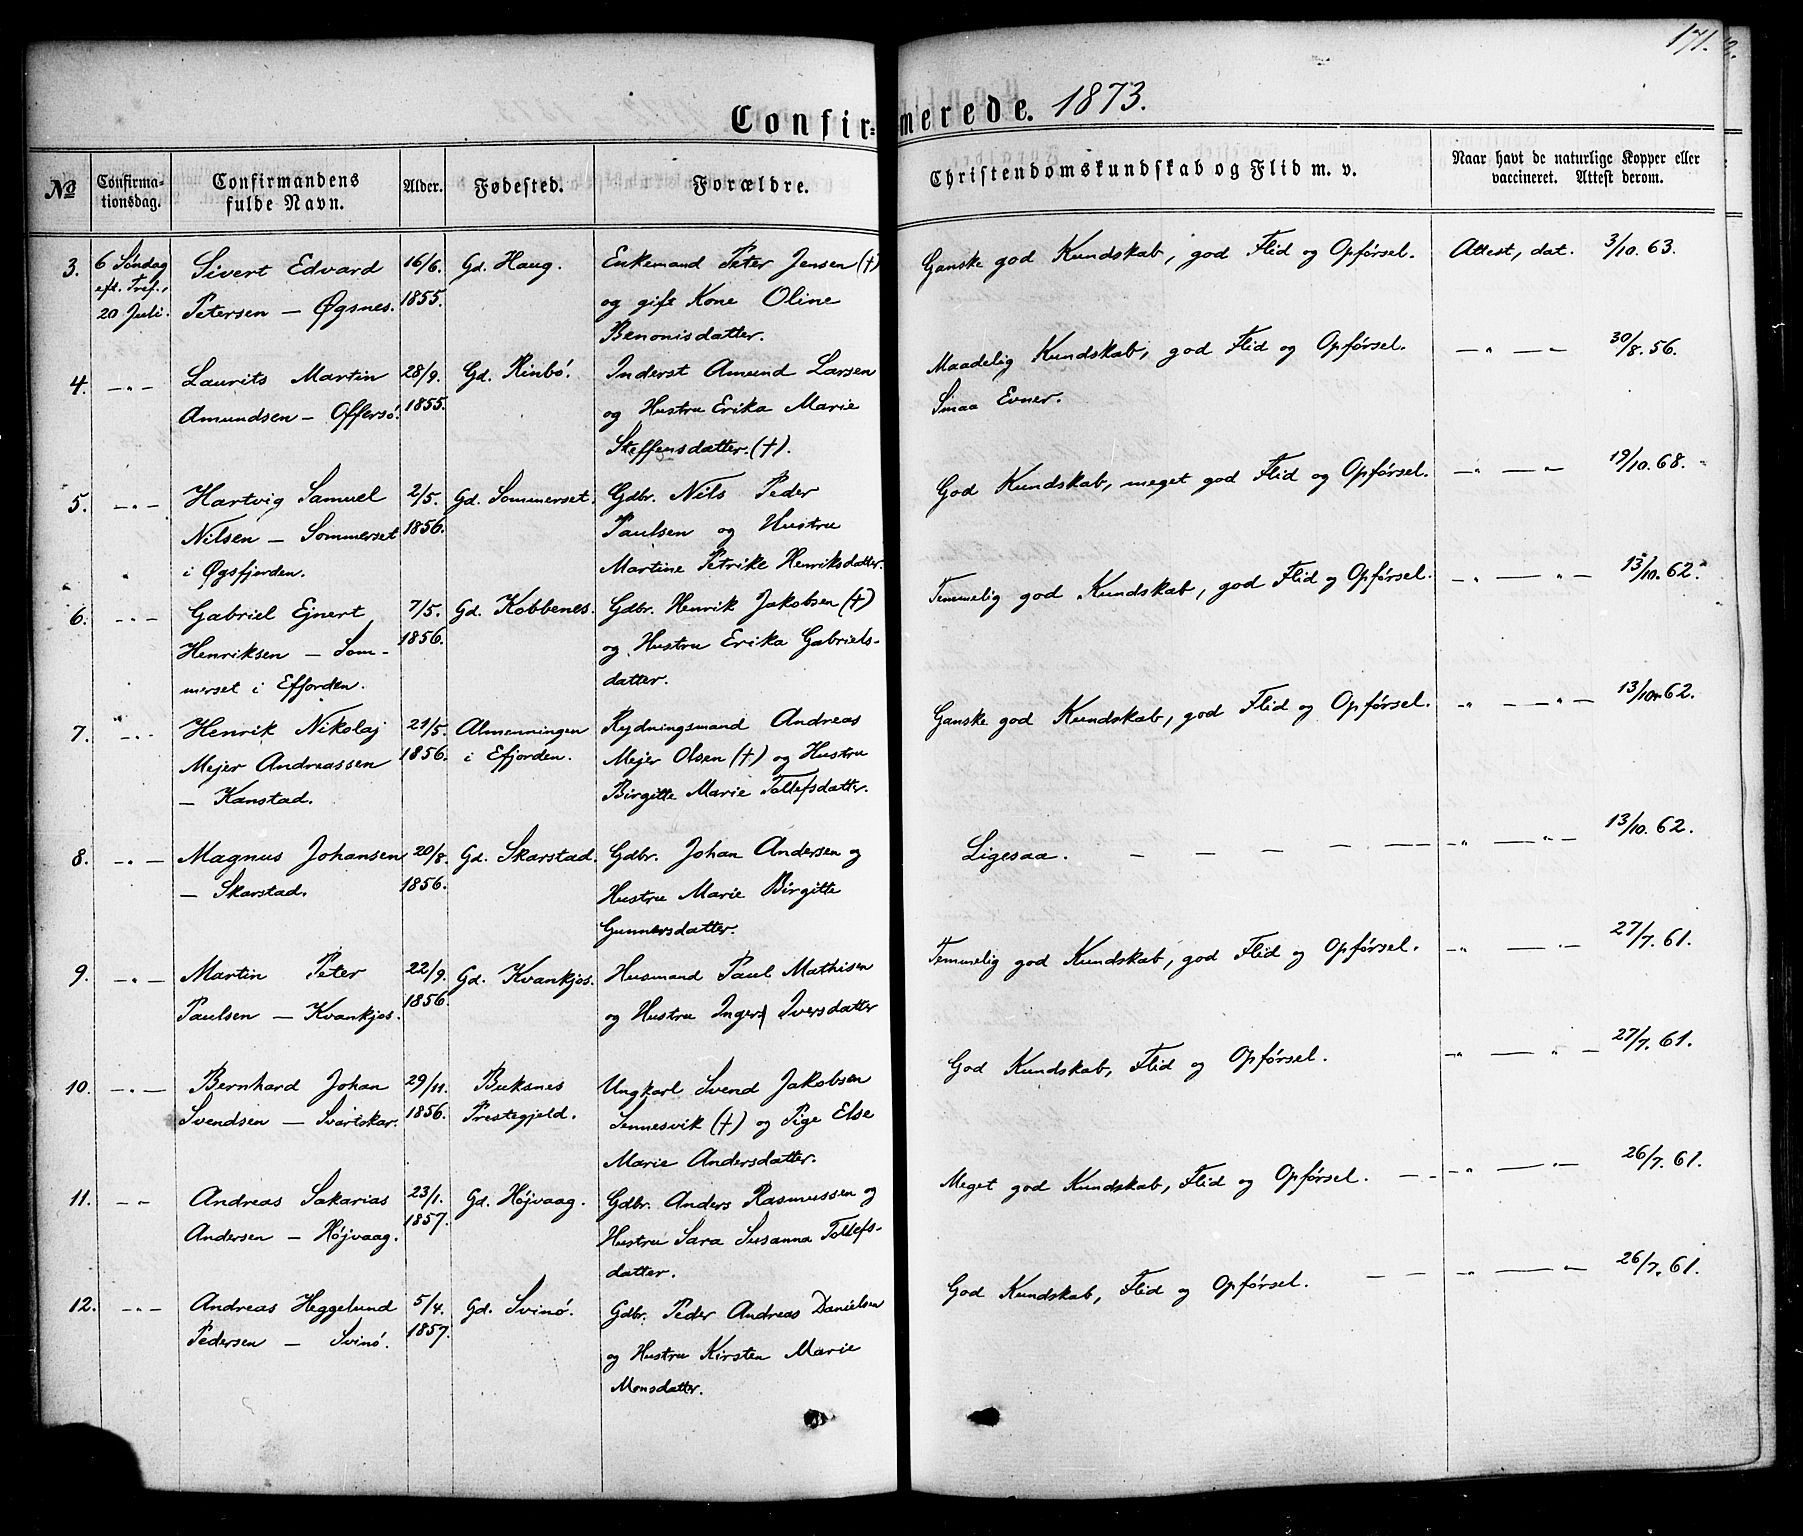 171.
Confirmerede. 1873.
№ Confirmationsdag. Confirmandens fulde Navn. Alder. Fødested. Forældre. Christendomskundskab og Flid m. v. Naar havt de naturlige Kopper eller vaccineret. Attest derom.
3. 6 Söndag Sivert Edvard 16/6. Gd. Haug. Enkemand Peter Jensen (†) Ganske god Kundskab, god Flid og Opförsel. Attest, dat. 3/10. 63.
eft. Tref., Petersen — Øgsnes. 1855. og gift Kone Oline
20 Juli. Benonisdatter.
4. —„— Laurits Martin 28/9. Gd. Rinbö. Inderst Amund Larsen Maadelig Kundskab, god Flid og Opförsel. —„— „— 30/8. 56.
Amundsen — Offersö. 1855. og Hustru Erika Marie Smaa Evner.
Steffensdatter. (†).
5. —„— Hartvig Samuel 2/5. Gd. Sommerset. Gdbr. Nils Peder God Kundskab, meget god Flid og Opförsel. —„— „— 19/10. 68.
Nilsen — Sommerset 1856. Paulsen og Hustru
i Øgsfjorden. Martine Petrike Henriksdatter.
6. —„— Gabriel Ejnert 7/5. Gd. Kobbenes. Gdbr. Henrik Jakobsen (†) Temmelig god Kundskab, god Flid og Opförsel. —„— „— 13/10. 62.
Henriksen — Som- 1856. og Hustru Erika Gabriels-
merset i Efjorden. datter.
7. —„— Henrik Nikolaj 21/5. Almenningen Rydningsmand Andreas Ganske god Kundskab, god Flid og Opförsel. „— „— 13/10. 62.
Mejer Andreassen 1856. i Efjorden. Mejer Olsen (†) og Hustru
— Kanstad. Birgitte Marie Tollefsdatter.
8. —„— Magnus Johansen 20/8. Gd. Skarstad. Gdbr. Johan Andersen og Ligesaa. — — — — — —„— „— 13/10. 62.
— Skarstad. 1856. Hustru Marie Birgitte
Gunnersdatter.
9. —„— Martin Peter 22/9. Gd. Kvankjos. Husmand Paul Mathisen Temmelig god Kundskab, god Flid og Opförsel. „— „— 27/7. 61.
Paulsen — Kvankjos. 1856. og Hustru Inger Iversdatter
10. —„— Bernhard Johan 29/11. Buksnes Ungkarl Svend Jakobsen God Kundskab, Flid og Opförsel. —„— „— 27/7. 61.
Svendsen — Svartskar. 1856. Prestegjeld. Sennesvik (†) og Pige Else
Marie Andersdatter.
11. —„— Andreas Sakarias 23/1. Gd. Höjvaag. Gdbr. Anders Rasmussen og Meget god Kundskab, Flid og Opförsel. — — —„— „— 26/7. 61.
Andersen — Höjvaag. 1857. Hustru Sara Susanna Tollefs-
datter.
12. —„— Andreas Heggelund 5/4. Gd. Svinö. Gdbr. Peder Andreas Danielsen God Kundskab, Flid og Opförsel. — — „— „— 26/7. 61.
Pedersen — Svinö. 1857. og Hustru Kirsten Marie
Monsdatter.